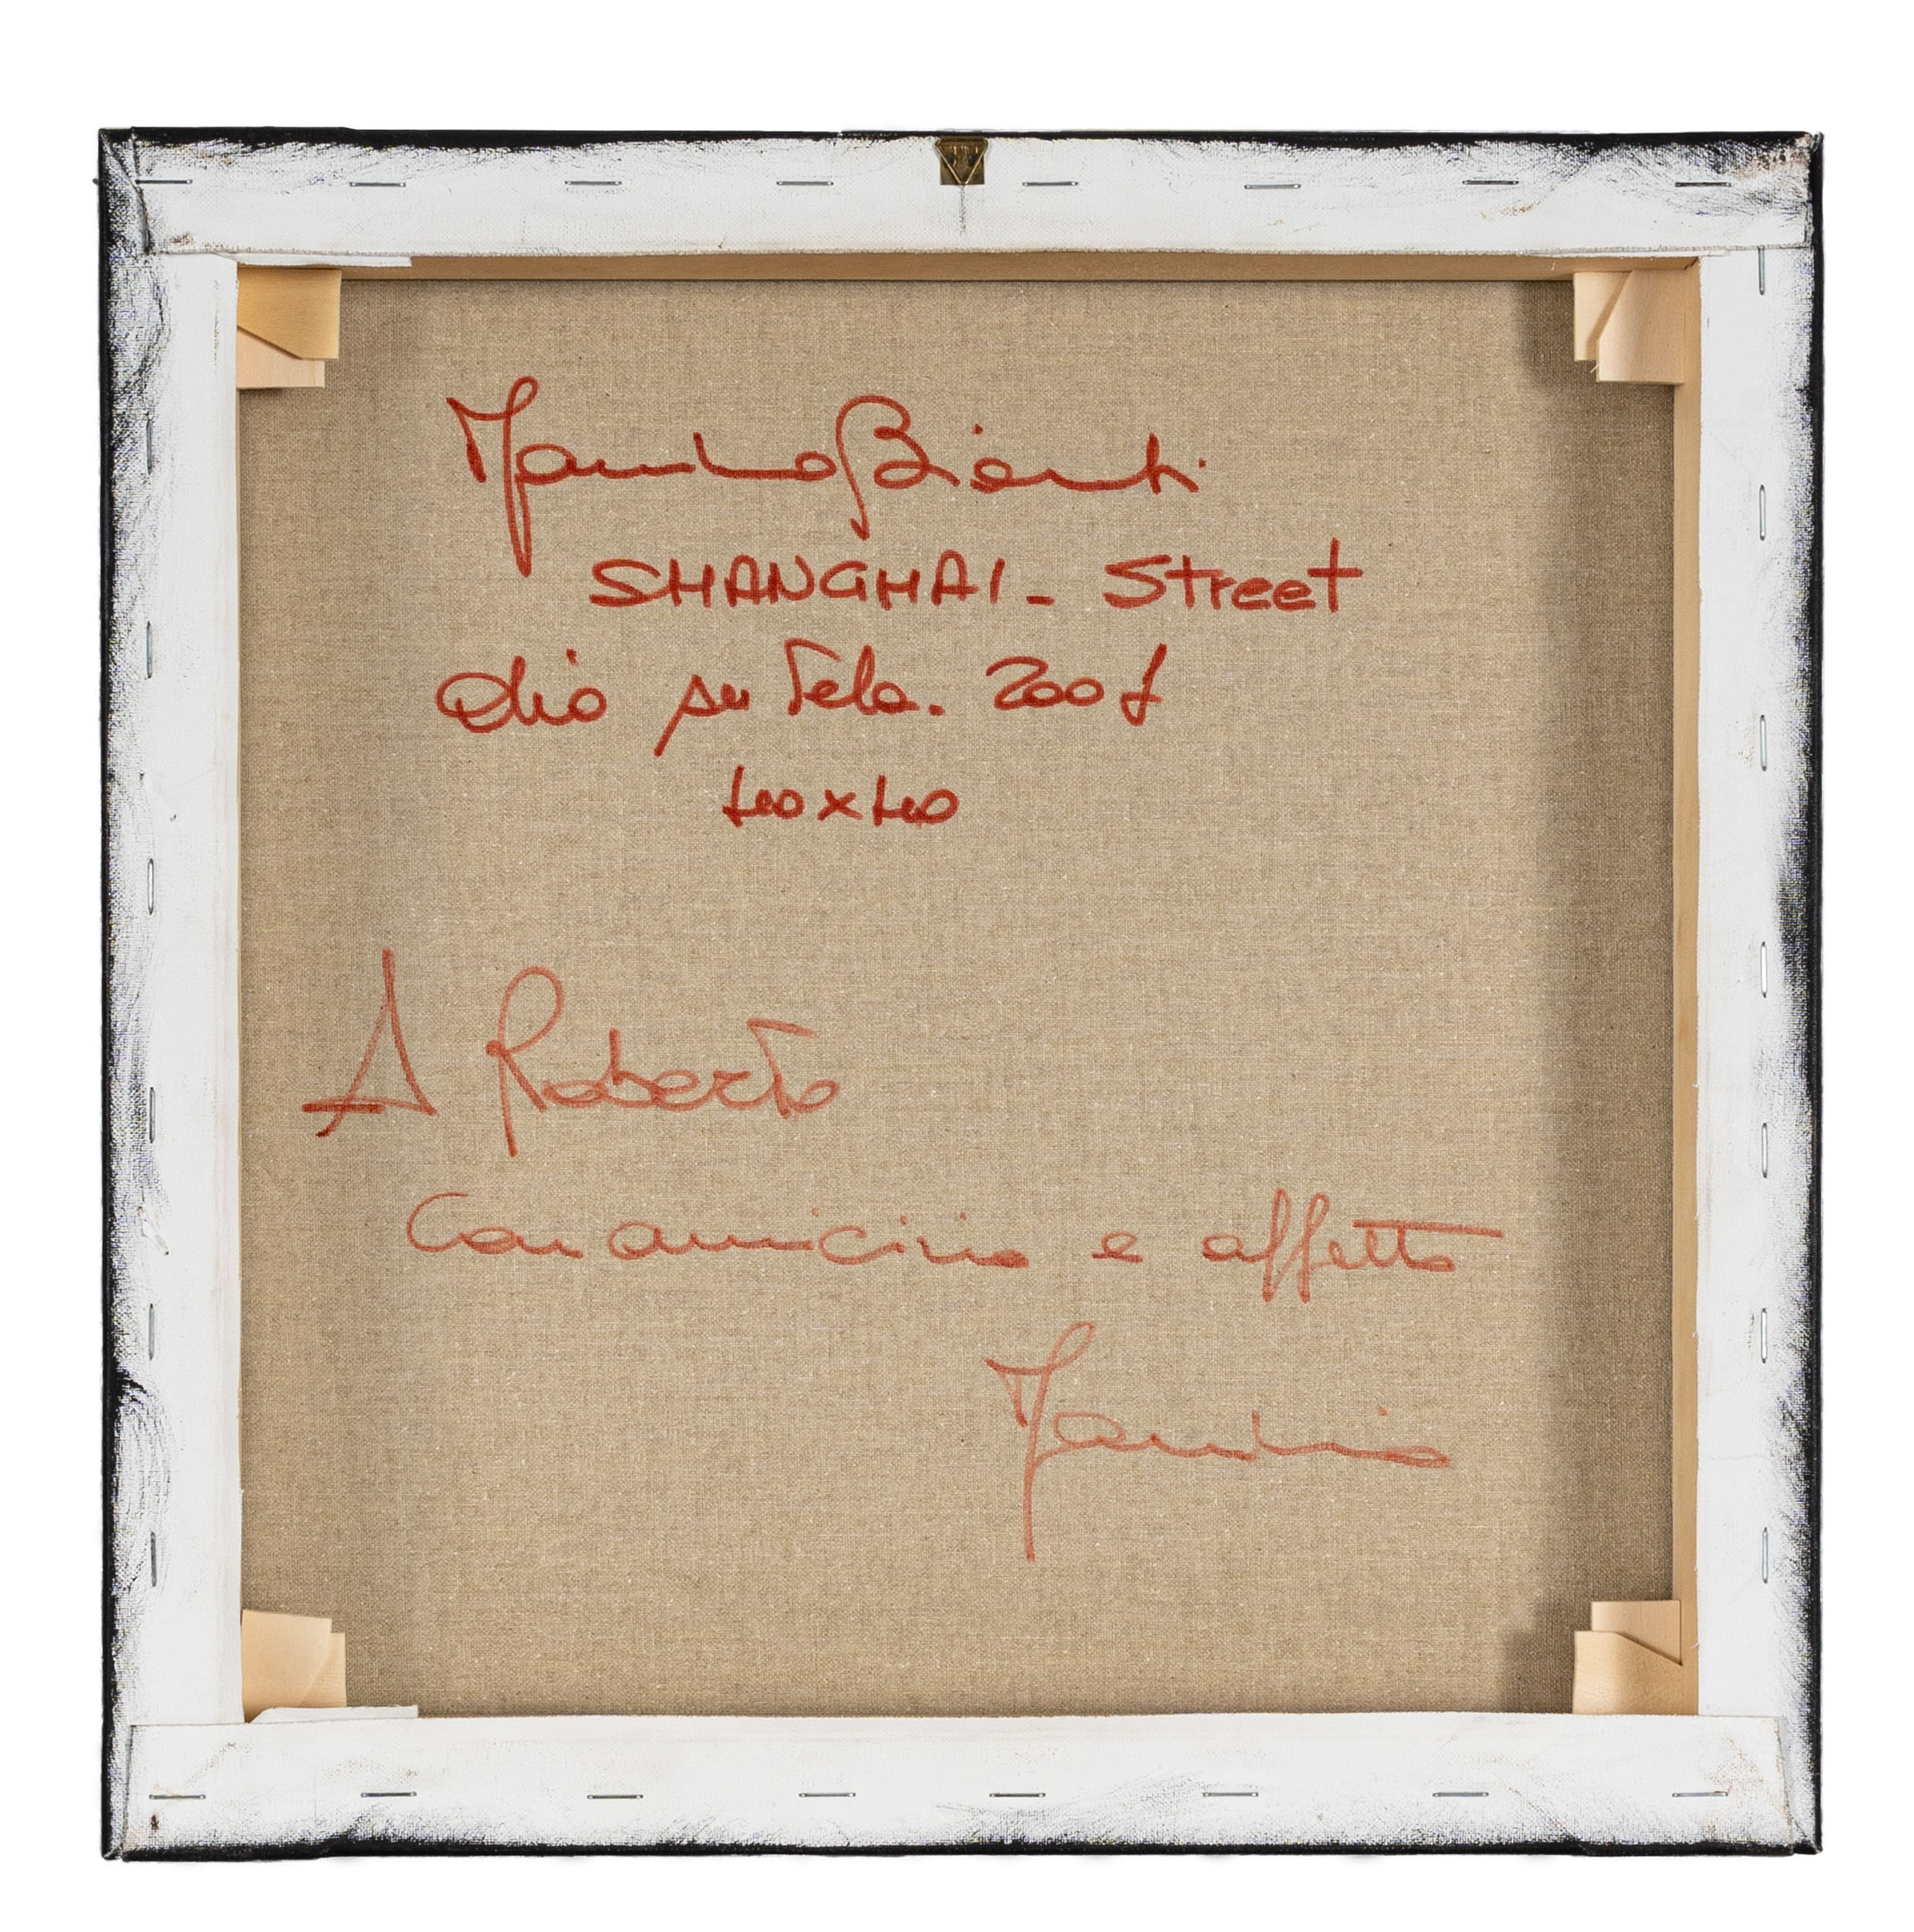 Maurizio Bianti
SHANGHAI - Street
Olio su Tela. 2007
40x40
A Roberto
Con amicizia e affetto
Maurizio